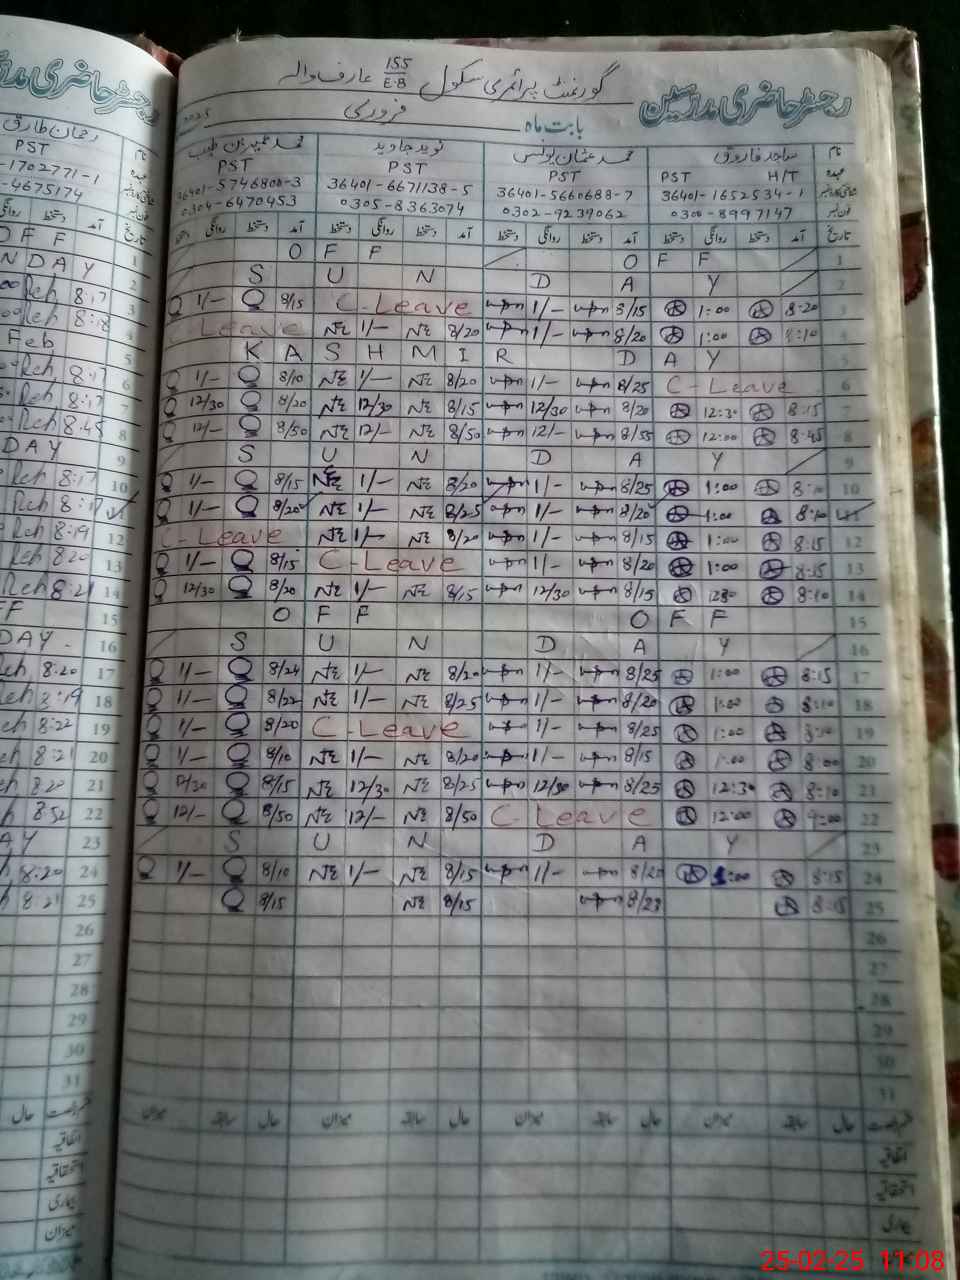 رجسٹر حاضری مدرسین
گورنمنٹ پرائمری سکول 155/E.B عارف والہ
بابت ماہ فروری 2025
نام ساجد فاروق محمد عثمان یونس نوید جاوید
عہدہ H/T PST PST PST PST
36401-1652534-1 36401-5660688-7 36401-6671138-5 36401-5746800-3
0300-8997147 0302-9239062 0305-8363074 0304-6470453
تاریخ آمد دستخط روانگی دستخط آمد دستخط روانگی دستخط آمد دستخط روانگی دستخط آمد دستخط روانگی دستخط
1 OFF OFF
2 SUNDAY
3 8:20 1:00 8/15 1/- C-Leave 8/15 1/-
4 8:10 1:00 8/20 1/- 8/20 1/- Leave
5 KASHMIR DAY
6 C-Leave 8/25 1/- 8/20 1/- 8/10 1/-
7 8:15 12:30 8/20 12/30 8/15 12/30 8/20 12/30
8 8:45 12:00 8/55 12/- 8/50 12/- 8/50 12/-
9 SUNDAY
10 1:00 8/25 1/- 8/20 1/- 8/15 1/-
11 8:10 1:00 8/20 1/- 8/25 1/- 8/20 1/-
12 8:15 1:00 8/15 1/- 8/20 1/- C-Leave
13 8:15 1:00 8/20 1/- C-Leave 8/15 1/-
14 8:10 8/15 12/30 8/15 1/- 8/20 12/30
15 OFF OFF
16 SUNDAY
17 8:15 1:00 8/25 1/- 8/20 1/- 8/24 1/-
18 8:10 1:00 8/20 1/- 8/25 1/- 8/22 1/-
19 8:10 1:00 8/25 1/- C-Leave 8/20 1/-
20 8:00 1:00 8/15 1/- 8/20 1/- 8/10 1/-
21 8:10 12:30 8/25 12/30 8/25 12/30 8/15 12/30
22 9:00 12:00 C-Leave 8/50 12/- 8/50 12/-
23 SUNDAY
24 8:15 1:00 8/25 1/- 8/15 1/- 8/10 1/-
25 8:15 8/23 8/15 8/15
26
27
28
29
30
31
حال سابقہ میزان حال سابقہ میزان حال سابقہ میزان
اتفاقیہ
استحقاقیہ
بیماری
رجسٹر حاضری
رحمان طارق
PST
-1702771-1
-4675174
OFF
NDAY
Rch 8:17
Rch 8:18
Feb
Rch 8:17
Rch 8:17
Rch 8:45
DAY
Rch 8:17
Rch 8:17
Rch 8:19
Rch 8:20
Rch 8:21
FF
DAY
8:20
8:19
8:22
8:21
8:20
8:52
AY
8:20
8:21
حال
اتفاقیہ
استحقاقیہ
بیماری
میزان
25-02-25 11:08